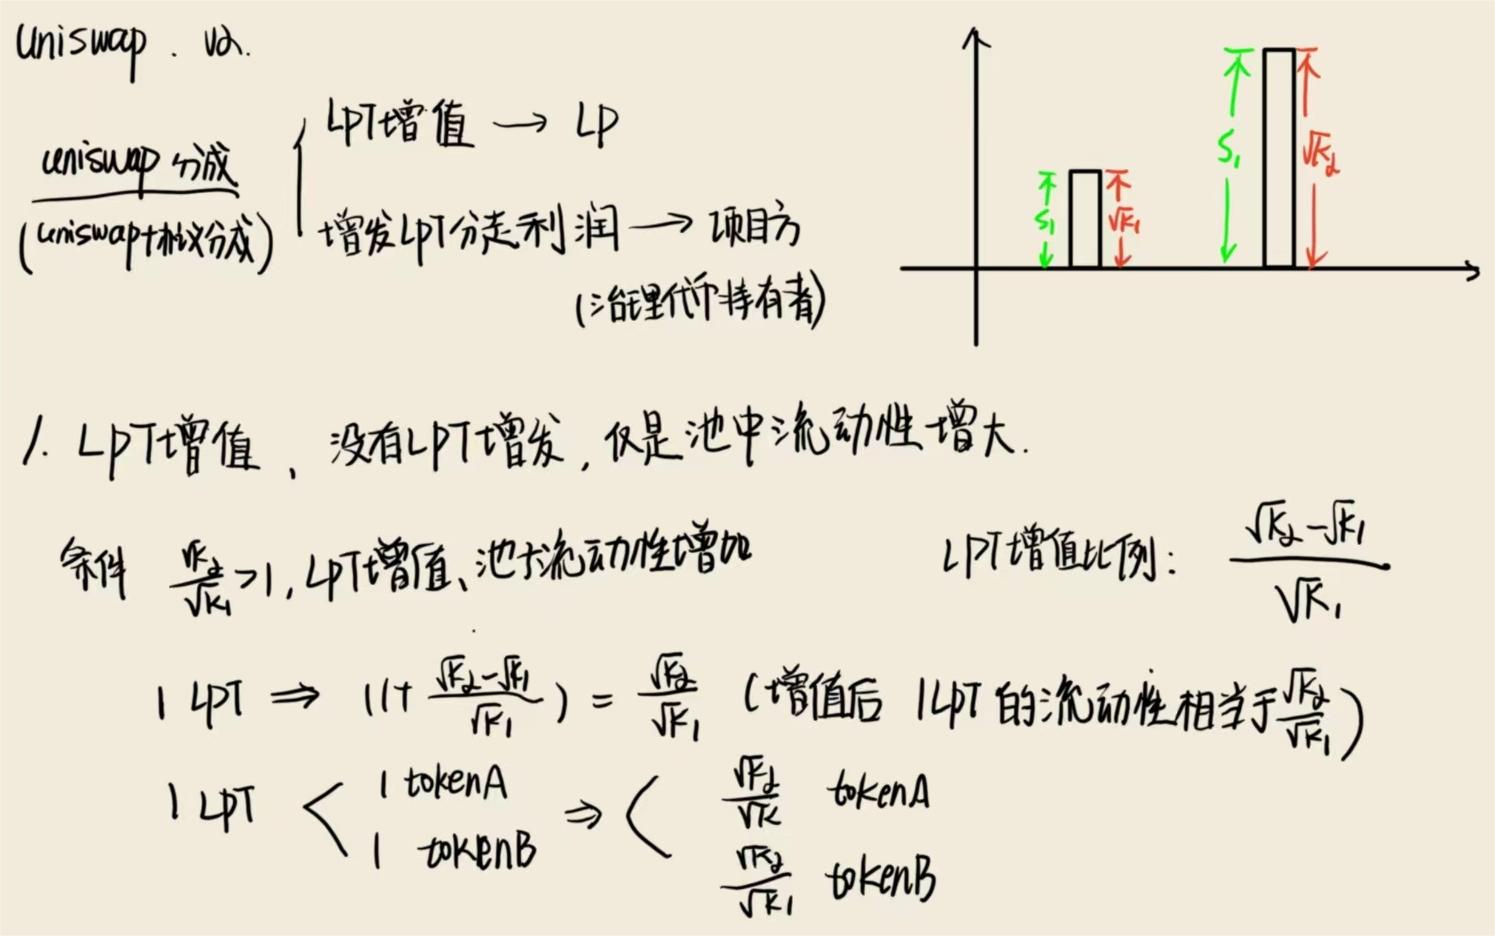 Uniswap . V2.
uniswap 分成
(uniswap协议分成)
LPT增值 → LP
增发LPT分走利润 → 项目方
(治理代币持有者)
S₁ √K₁
S₁ √K₂
1. LPT增值、没有LPT增发,仅是池中流动性增大.
条件 √K₂/√K₁ >1, LPT增值、池子流动性增加
LPT增值比例: (√K₂-√K₁)/√K₁
1 LPT ⇒ (1+ (√K₂-√K₁)/√K₁) = √K₂/√K₁ (增值后 1LPT 的流动性相当于√K₂/√K₁)
1 LPT < 1 tokenA ⇒ < √K₂/√K tokenA
1 tokenB √K₂/√K₁ tokenB